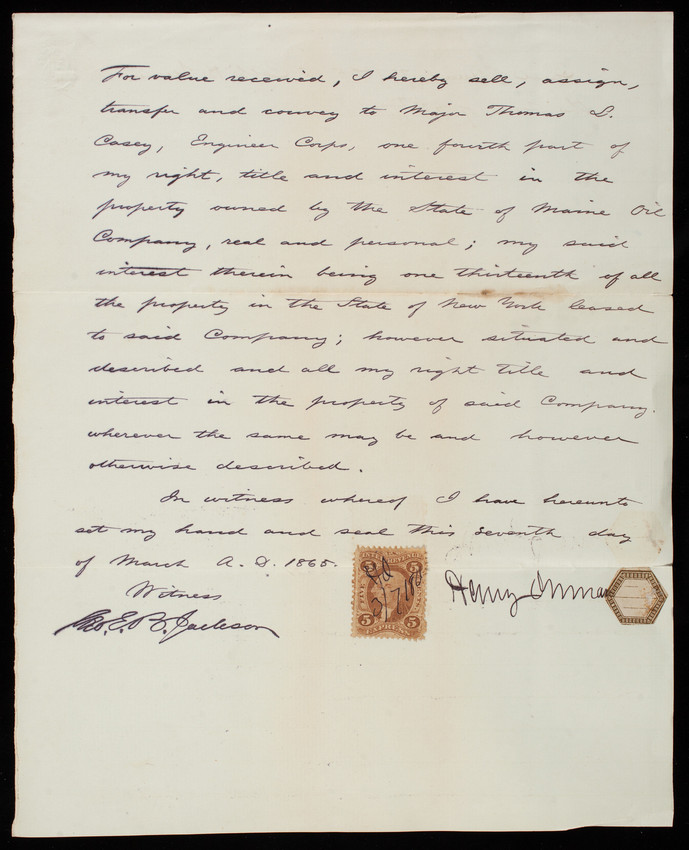 For value received, I hereby sell, assign,
transfer and convey to Major Thomas L.
Casey, Engineer Corps, one fourth part of
my right, title and interest in the
property owned by the State of Maine Oil
Company, real and personal; my said
interest therein being one thirteenth of all
the property in the State of New York leased
to said Company; however situated and
described and all my right title and
interest in the property of said Company.
wherever the same may be and however
otherwise described.
In witness whereof I have hereunto
set my hand and seal this seventh day
of March A. D. 1865.
Witness
Geo. E. B. Jackson
5 5
FIVE CENTS
3/7
5 5
EXPRESS
Henry Inman